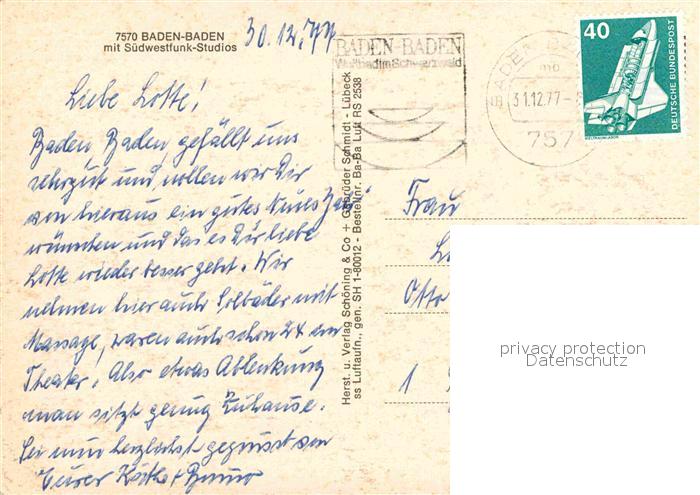 7570 BADEN-BADEN
mit Südwestfunk-Studios
30.12.77
BADEN-BADEN
Weltbad im Schwarzwald
BADEN-BA
mo
31.12.77-
757
40
DEUTSCHE BUNDESPOST
WELTRAUMLABOR
Liebe Lotte!
Baden Baden gefällt uns
sehr gut und wollen wir Dir
von hieraus ein gutes Neues Jahr
wünschen und das es Dir liebe
Lotte wieder besser geht. Wir
nehmen hier auch Solbäder mit
Massage, waren auch schon 2x im
Theater. Also etwas Ablenkung
man sitzt genug Zuhause.
Sei nun herzlichst gegrüsst von
Eurer Käthe + Bruno
Herst. u. Verlag Schöning & Co + Gebrüder Schmidt - Lübeck
ss Luftaufn., gen. SH 1-80012 - Bestellnr. Ba-Ba Luft RS 2538
Frau
Otto
1
privacy protection
Datenschutz